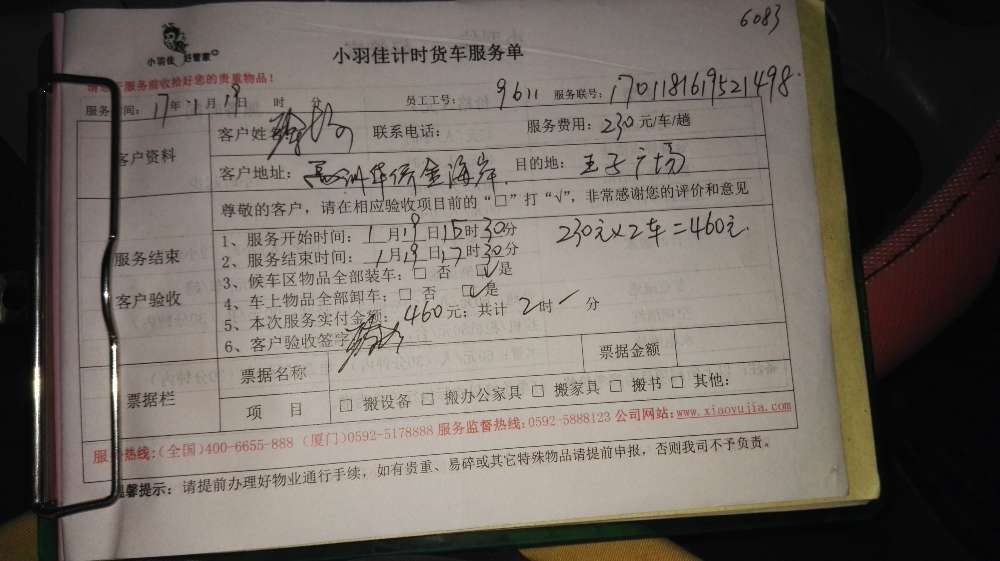 6083
小羽佳 好管家
小羽佳计时货车服务单
服务前收拾好您的贵重物品！
服务时间：17年1月19日 时 分 员工工号：9611 服务联号：1701181619521498
客户资料
客户姓名 联系电话： 服务费用：230元/车/趟
客户地址：华侨金海岸 目的地：王子广场
尊敬的客户，请在相应验收项目前的“□”打“√”，非常感谢您的评价和意见
服务结束
客户验收
1、服务开始时间：1月19日15时30分 230元×2车=460元
2、服务结束时间：1月19日17时30分
3、候车区物品全部装车：□ 否 ☑是
4、车上物品全部卸车：□ 否 ☑是
5、本次服务实付金额：460元；共计2时 分
6、客户验收签字
票据栏
票据名称 票据金额
项 目 □ 搬设备 □ 搬办公家具 □ 搬家具 □ 搬书 □ 其他：
服务热线：(全国)400-6655-888 (厦门)0592-5178888 服务监督热线：0592-5888123 公司网站：www.xiaoyujia.com
温馨提示：请提前办理好物业通行手续，如有贵重、易碎或其它特殊物品请提前申报，否则我司不予负责。